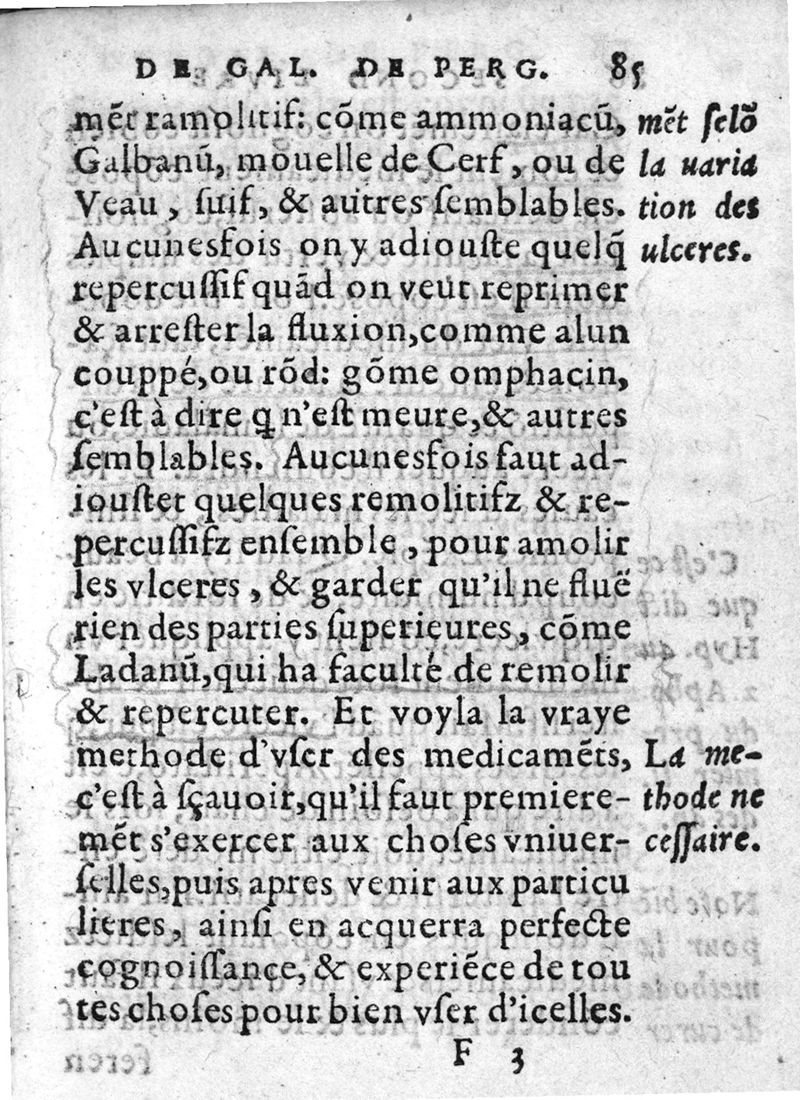 DE GAL. DE PERG. 85
mẽt ramolitif: cõme ammoniacũ,
Galbanũ, mouelle de Cerf, ou de
Veau, ſuif, & autres ſemblables.
Aucunesfois on y adiouſte quelq̃
repercuſſif quãd on veut reprimer
& arreſter la fluxion, comme alun
couppé, ou rõd: gõme omphacin,
c'eſt à dire q̃ n'eſt meure, & autres
ſemblables. Aucunesfois faut ad-
iouſter quelques remolitifz & re-
percuſſifz enſemble, pour amolir
les vlceres, & garder qu'il ne fluë
rien des parties ſuperieures, cõme
Ladanũ, qui ha faculté de remolir
& repercuter. Et voyla la vraye
methode d'vſer des medicamẽts,
c'eſt à ſçauoir, qu'il faut premiere-
mẽt s'exercer aux choſes vniuer-
ſelles, puis apres venir aux particu
lieres, ainſi en acquerra perfecte
cognoiſſance, & experiẽce de tou
tes choſes pour bien vſer d'icelles.
mẽt ſelõ
la uaria
tion des
ulceres.
La me-
thode ne
ceſſaire.
F 3